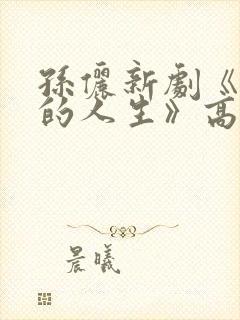 孫儷新劇《
的人生》高
晨曦